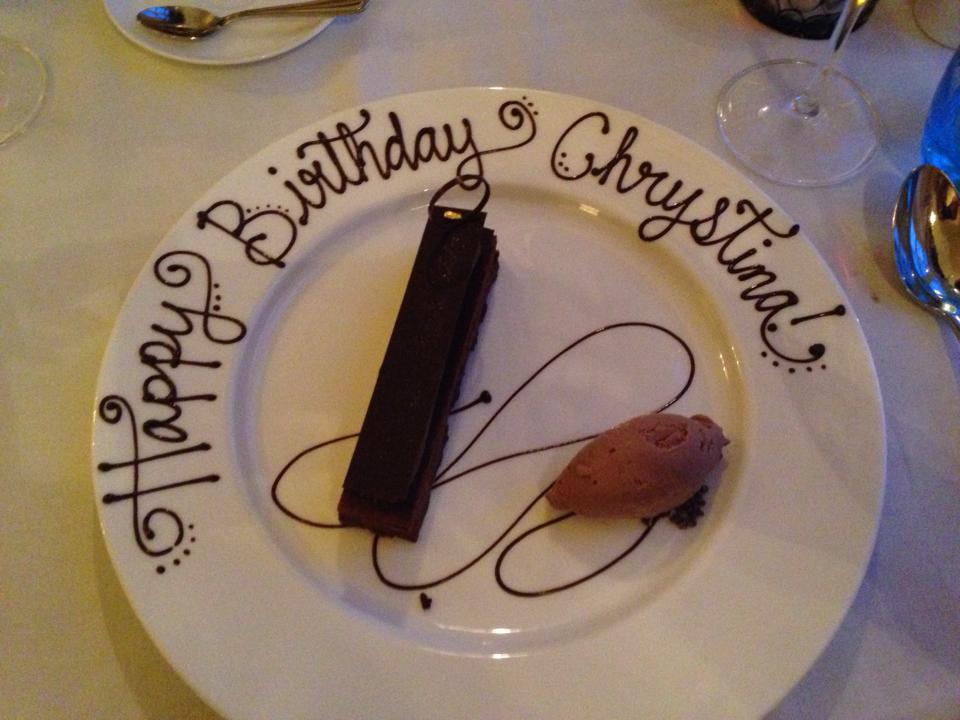 Happy Birthday Chrystina!